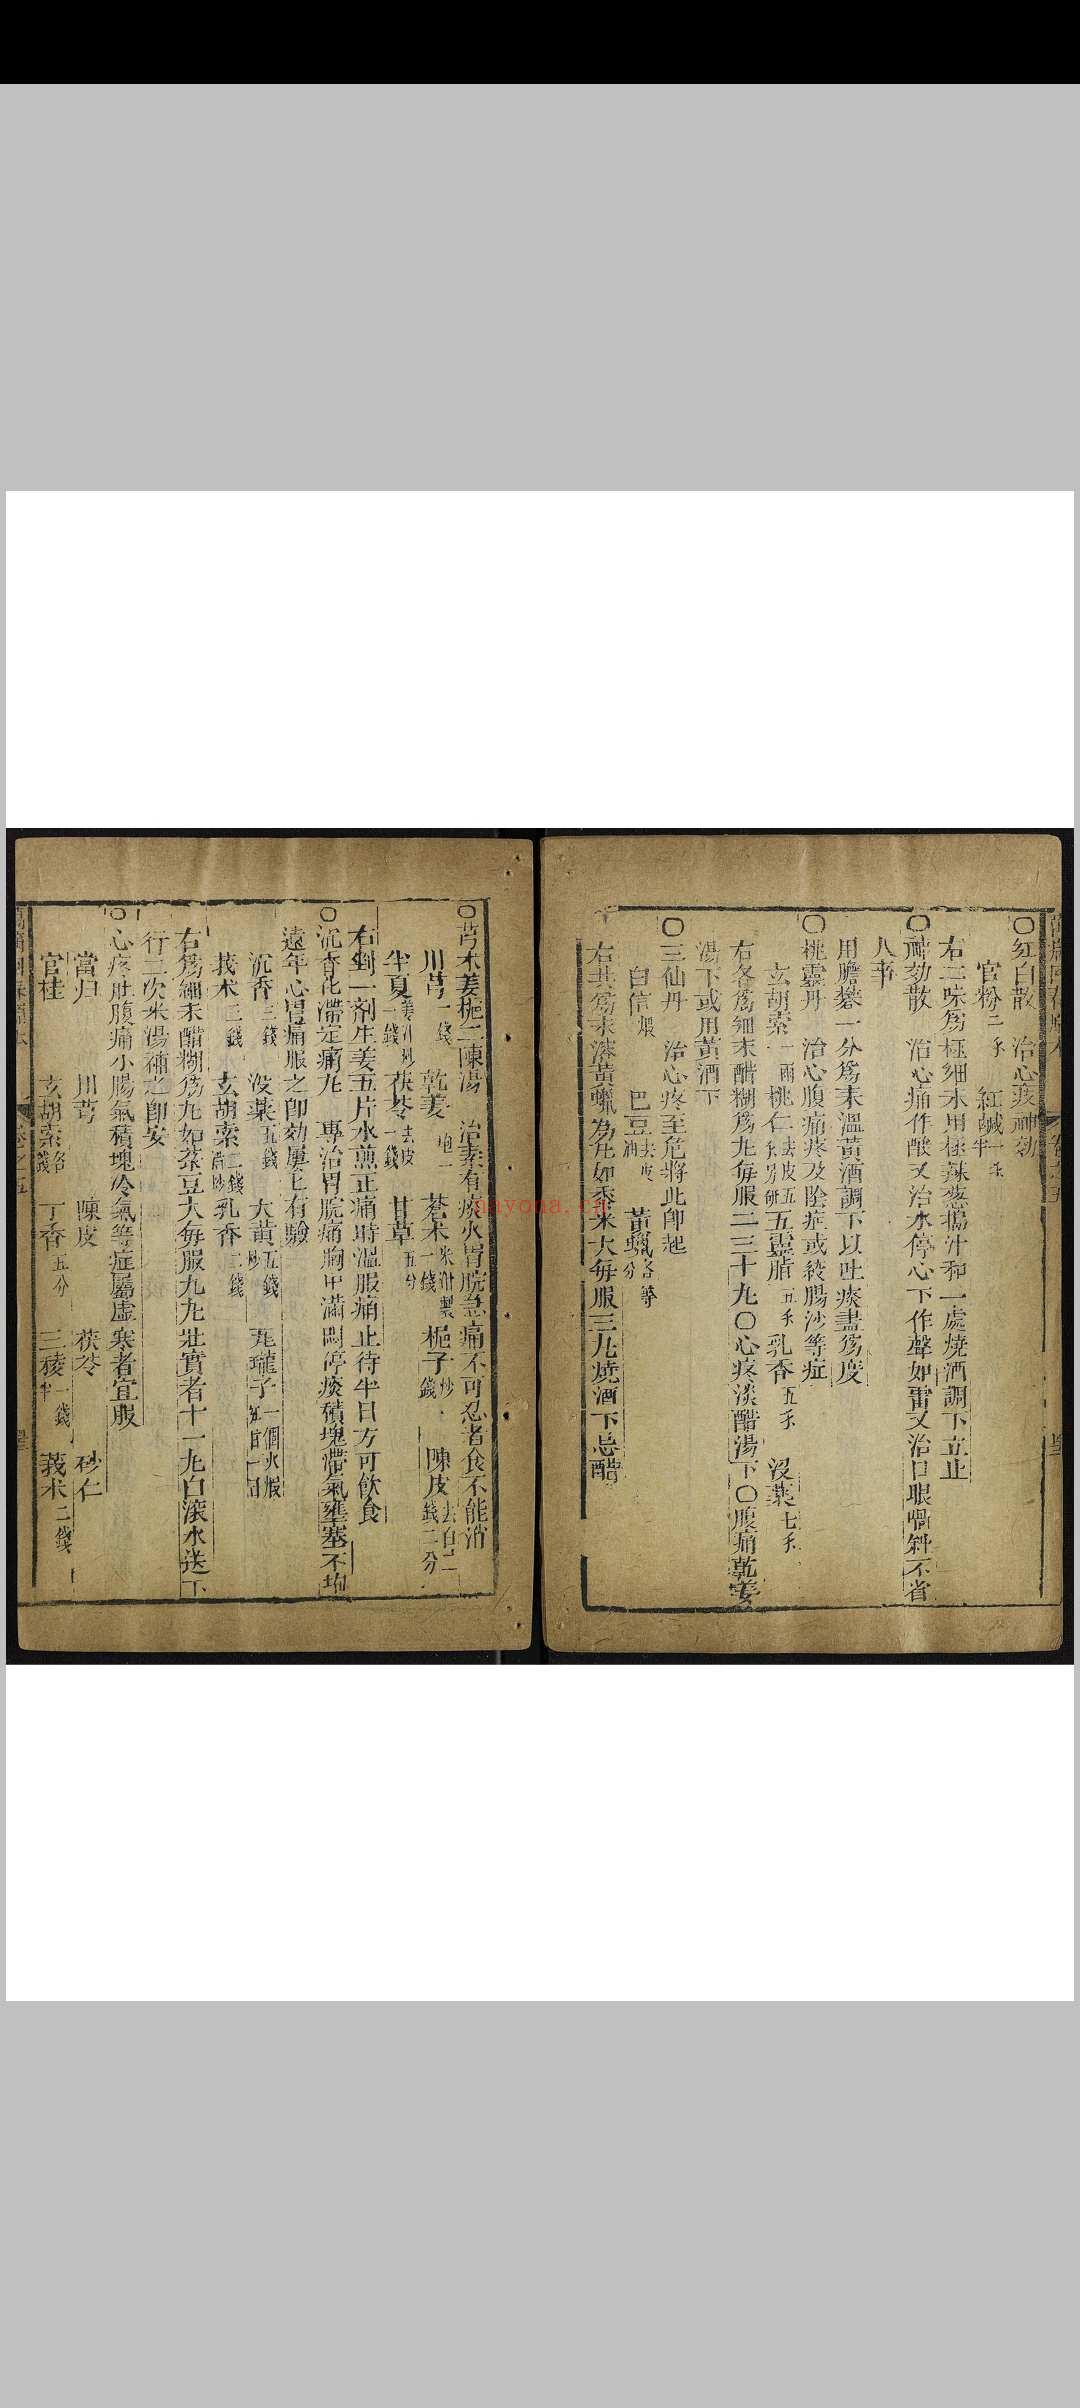 ○红白散 治心疼神効
官粉二钱 紅鹹一钱半
右二味爲極細末用極辣葱搗汁和一處燒酒調下立止
○神効散 治心痛作酸又治水停心下作聲如雷又治口眼喎斜不省
人事
用膽礬一分爲末温黄酒調下以吐痰盡爲度
○桃靈丹 治心腹痛疼及陰症或絞腸沙等症
玄胡索一兩 桃仁去皮五钱另研 五靈脂五钱 乳香五钱 没薬七钱
右各爲細末醋糊爲丸每服二三十丸○心疼淡醋湯下○腹痛乾姜
湯下或用黄酒下
○三仙丹 治心疼至危將此即起
白信煨 巴豆去皮油 黄蠟各等分
右共爲末溶黄蠟為丸如黍米大每服三丸燒酒下忌醋
○芎术姜梔二陳湯 治素有痰火胃脘急痛不可忍者食不能消
川芎一錢 乾姜炮一 蒼术米泔製一錢 梔子炒錢 陳皮去白二錢二分
半夏姜汁炒一錢 茯苓去皮一錢 甘草五分
右剉一劑生姜五片水煎正痛時溫服痛止待半日方可飲食
○沉香化滯定痛丸 專治胃脘痛胸中滿悶停痰積塊滯氣壅塞不拘
遠年心胃痛服之即効屢上有驗
沉香三錢 没薬五錢 大黄五錢炒 瓦瓏子一個火煅紅
莪术三錢 玄胡索三錢酒炒 乳香二錢
右爲細末醋糊爲丸如菉豆大每服九丸壯實者十一丸白滾水送下
行二次米湯補之即安
○心疼肚腹痛小腸氣積塊冷氣等症屬虛寒者宜服
當归 川芎 陳皮 茯苓 砂仁
官桂 玄胡索各錢 丁香五分 三稜一錢半 莪术二錢
nayona.cn